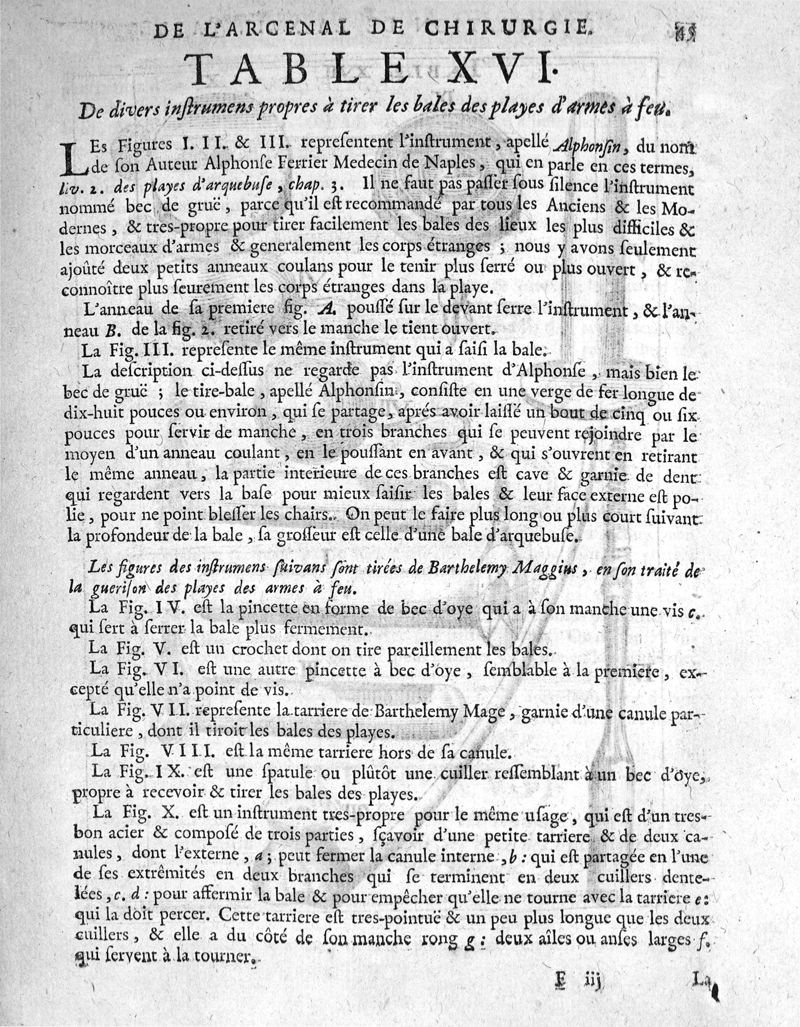 DE L'ARCENAL DE CHIRURGIE. 45
TABLE XVI.
De divers inſtrumens propres à tirer les bales des playes d'armes à feu.
LEs Figures I. II. & III. repreſentent l'inſtrument, apellé Alphonſin, du nom
de ſon Auteur Alphonſe Ferrier Medecin de Naples, qui en parle en ces termes,
liv. 2. des playes d'arquebuſe, chap. 3. Il ne faut pas paſſer ſous ſilence l'inſtrument
nommé bec de gruë, parce qu'il eſt recommandé par tous les Anciens & les Mo-
dernes, & tres-propre pour tirer facilement les bales des lieux les plus difficiles &
les morceaux d'armes & generalement les corps étranges; nous y avons ſeulement
ajoûté deux petits anneaux coulans pour le tenir plus ſerré ou plus ouvert, & re-
connoître plus ſeurement les corps étranges dans la playe.
L'anneau de ſa premiere fig. A. pouſſé ſur le devant ſerre l'inſtrument, & l'an-
neau B. de la fig. 2. retiré vers le manche le tient ouvert.
La Fig. III. repreſente le même inſtrument qui a ſaiſi la bale.
La deſcription ci-deſſus ne regarde pas l'inſtrument d'Alphonſe, mais bien le
bec de gruë; le tire-bale, apellé Alphonſin, conſiſte en une verge de fer longue de
dix-huit pouces ou environ, qui ſe partage, aprés avoir laiſſé un bout de cinq ou ſix
pouces pour ſervir de manche, en trois branches qui ſe peuvent rejoindre par le
moyen d'un anneau coulant, en le pouſſant en avant, & qui s'ouvrent en retirant
le même anneau, la partie interieure de ces branches eſt cave & garnie de dent
qui regardent vers la baſe pour mieux ſaiſir les bales & leur face externe eſt po-
lie, pour ne point bleſſer les chairs. On peut le faire plus long ou plus court ſuivant
la profondeur de la bale, ſa groſſeur eſt celle d'une bale d'arquebuſe.
Les figures des inſtrumens ſuivans ſont tirées de Barthelemy Maggius, en ſon traité de
la gueriſon des playes des armes à feu.
La Fig. IV. eſt la pincette en forme de bec d'oye qui a à ſon manche une vis c.
qui ſert à ſerrer la bale plus fermement.
La Fig. V. eſt un crochet dont on tire pareillement les bales.
La Fig. VI. eſt une autre pincette à bec d'oye, ſemblable à la premiere, ex-
cepté qu'elle n'a point de vis.
La Fig. VII. repreſente la tarriere de Barthelemy Mage, garnie d'une canule par-
ticuliere, dont il tiroit les bales des playes.
La Fig. VIII. eſt la même tarriere hors de ſa canule.
La Fig. IX. eſt une ſpatule ou plûtôt une cuiller reſſemblant à un bec d'oye,
propre à recevoir & tirer les bales des playes.
La Fig. X. eſt un inſtrument tres-propre pour le même uſage, qui eſt d'un tres-
bon acier & compoſé de trois parties, ſçavoir d'une petite tarriere & de deux ca-
nules, dont l'externe, a; peut fermer la canule interne, b: qui eſt partagée en l'une
de ſes extrêmités en deux branches qui ſe terminent en deux cuillers dente-
lées, c. d: pour affermir la bale & pour empêcher qu'elle ne tourne avec la tarriere e:
qui la doit percer. Cette tarriere eſt tres-pointuë & un peu plus longue que les deux
cuillers, & elle a du côté de ſon manche rong g: deux aîles ou anſes larges f.
qui ſervent à la tourner.
F iij La